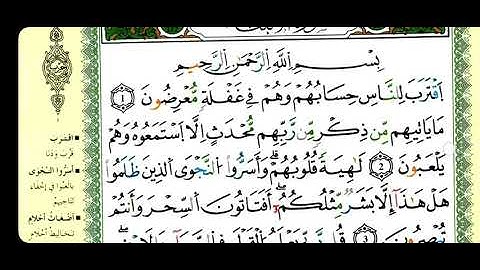 بِسْمِ اللَّهِ الرَّحْمَٰنِ الرَّحِيمِ
اقْتَرَبَ لِلنَّاسِ حِسَابُهُمْ وَهُمْ فِي غَفْلَةٍ مُّعْرِضُونَ ١
مَا يَأْتِيهِم مِّن ذِكْرٍ مِّن رَّبِّهِم مُّحْدَثٍ إِلَّا اسْتَمَعُوهُ وَهُمْ
يَلْعَبُونَ ٢ لَاهِيَةً قُلُوبُهُمْ ۗ وَأَسَرُّوا النَّجْوَى الَّذِينَ ظَلَمُوا
هَلْ هَٰذَا إِلَّا بَشَرٌ مِّثْلُكُمْ ۖ أَفَتَأْتُونَ السِّحْرَ وَأَنتُمْ
تُبْصِرُونَ ٣
حزب
اقْتَرَبَ
قَرُبَ وَدَنَا
أَسَرُّوا النَّجْوَى
بالَغُوا في إخْفَاءِ
تَناجِيهم
أَضْغَاثُ أَحْلَامٍ
تَخَالِيطُ أَحْلَامٍ